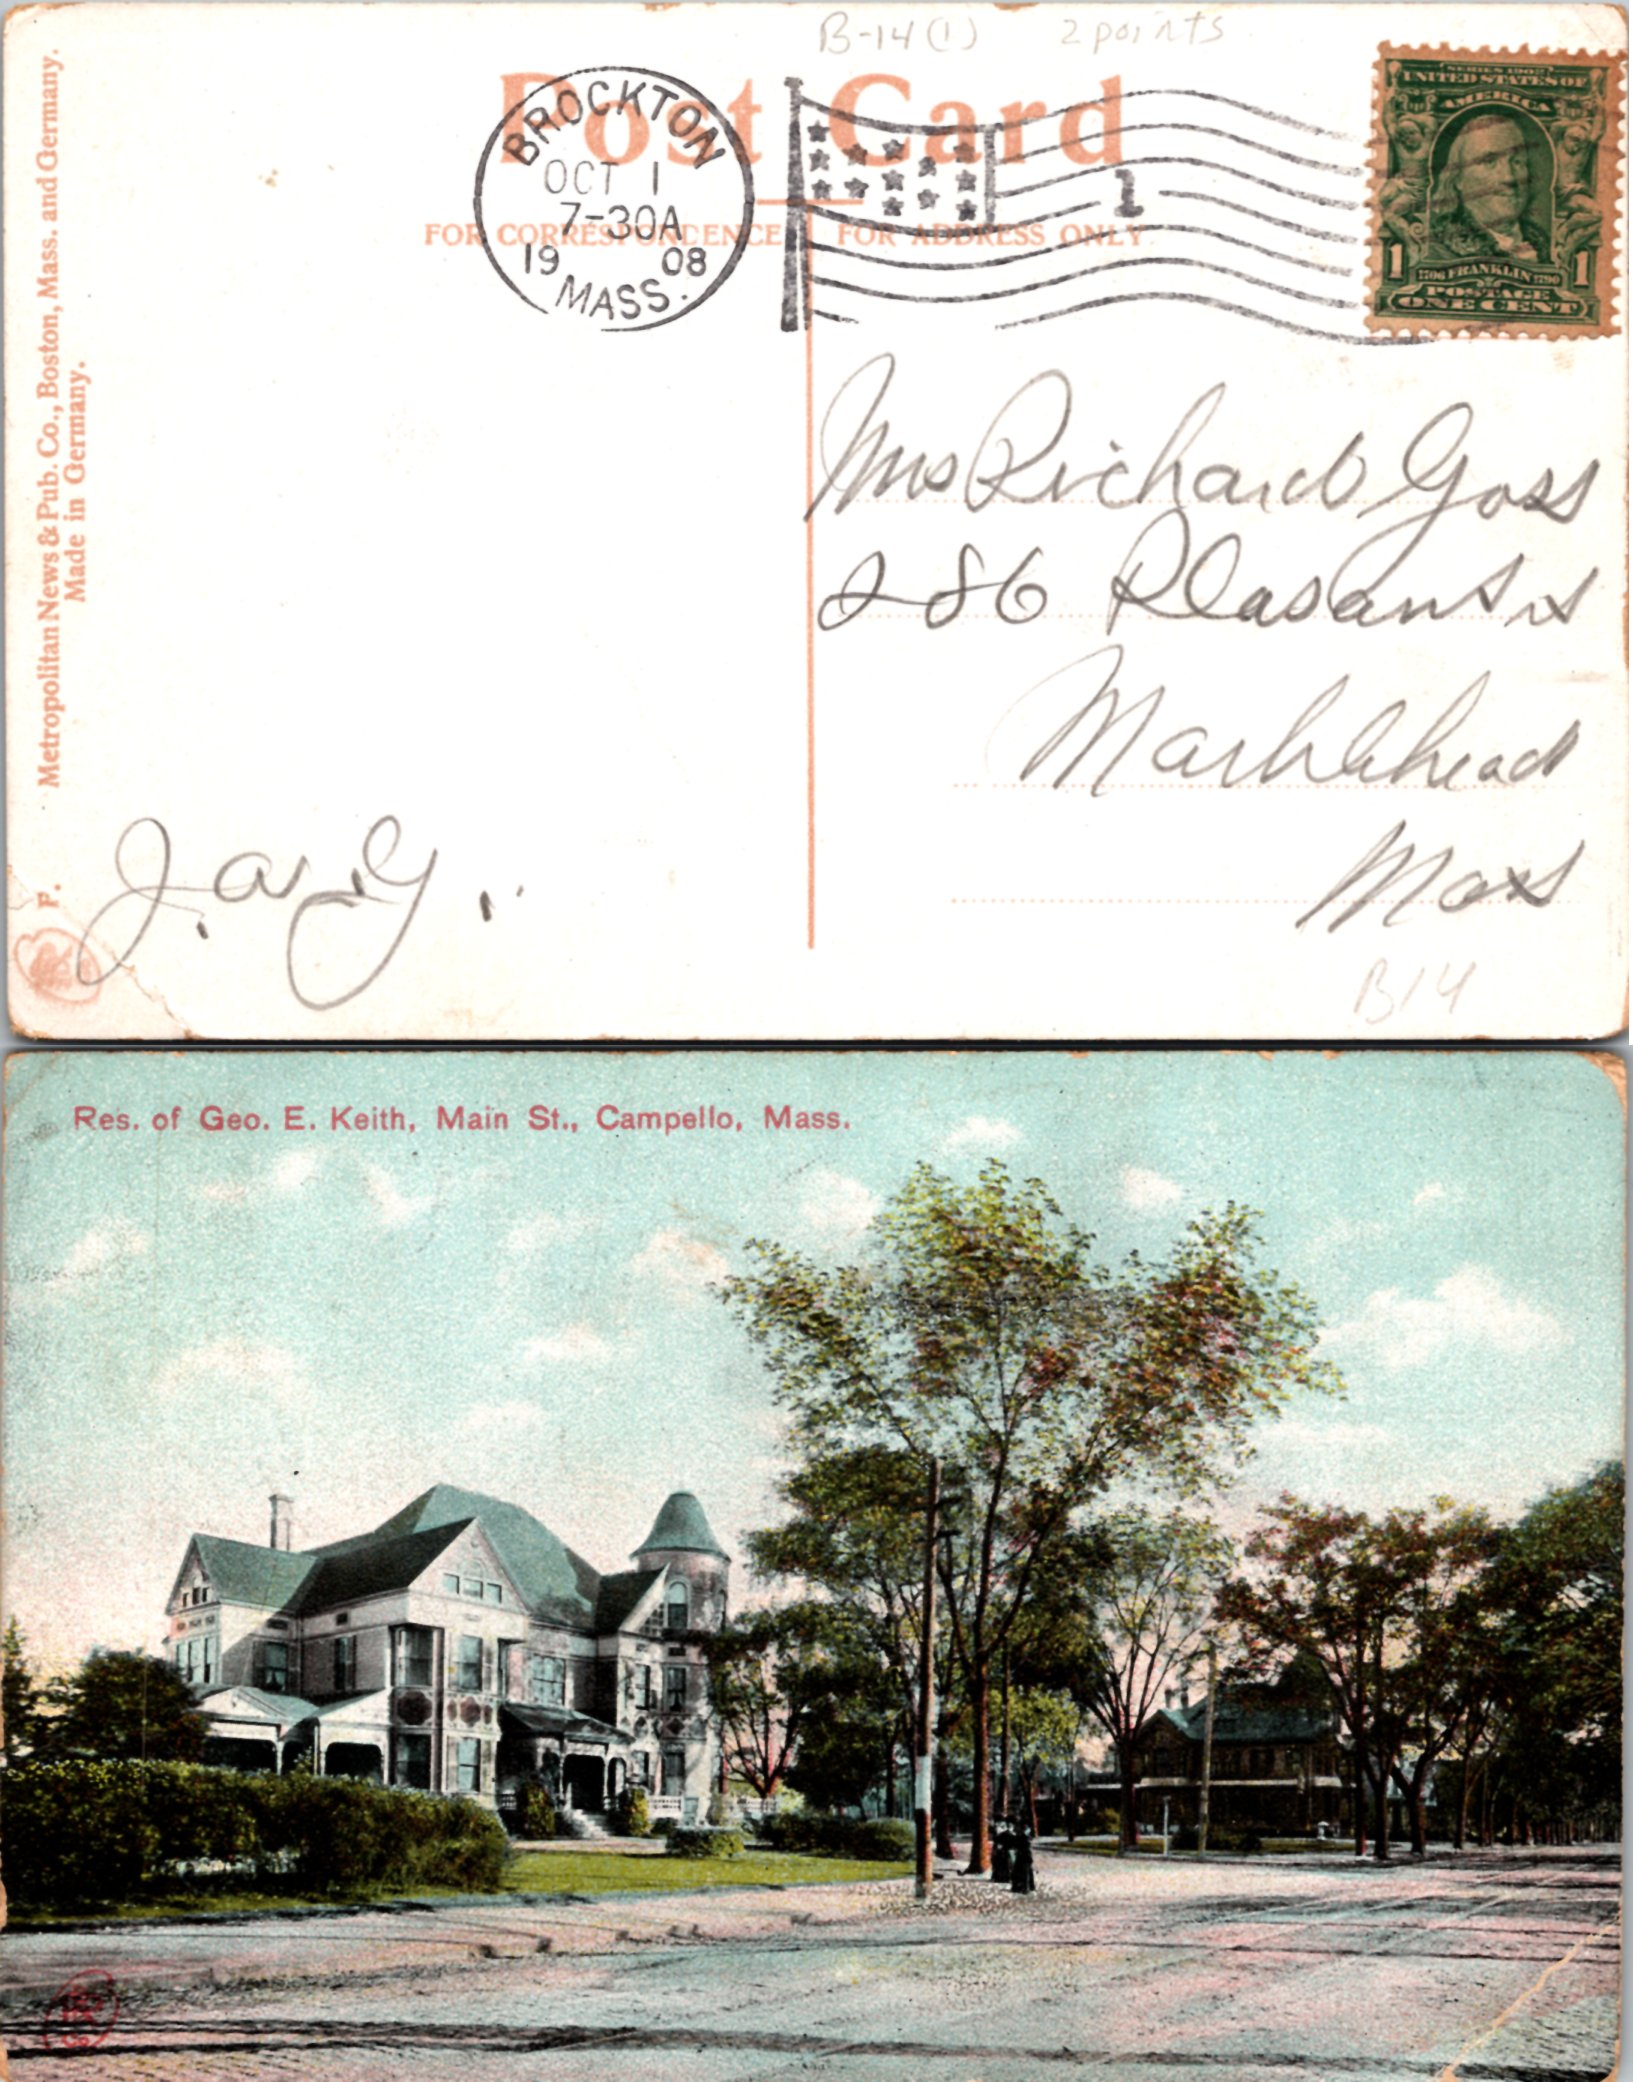 B-14 (1) 2 points
Post Card
FOR CORRESPONDENCE FOR ADDRESS ONLY
BROCKTON
OCT 1
7-30A
19 08
MASS.
1
SERIES 1902
UNITED STATES OF
AMERICA
1 1
1706 FRANKLIN 1790
POSTAGE
ONE CENT
F. Metropolitan News & Pub. Co., Boston, Mass. and Germany.
Made in Germany.
Mrs Richard Goss
286 Pleasant St
Marblehead
Mass
B14
Res. of Geo. E. Keith, Main St., Campello, Mass.